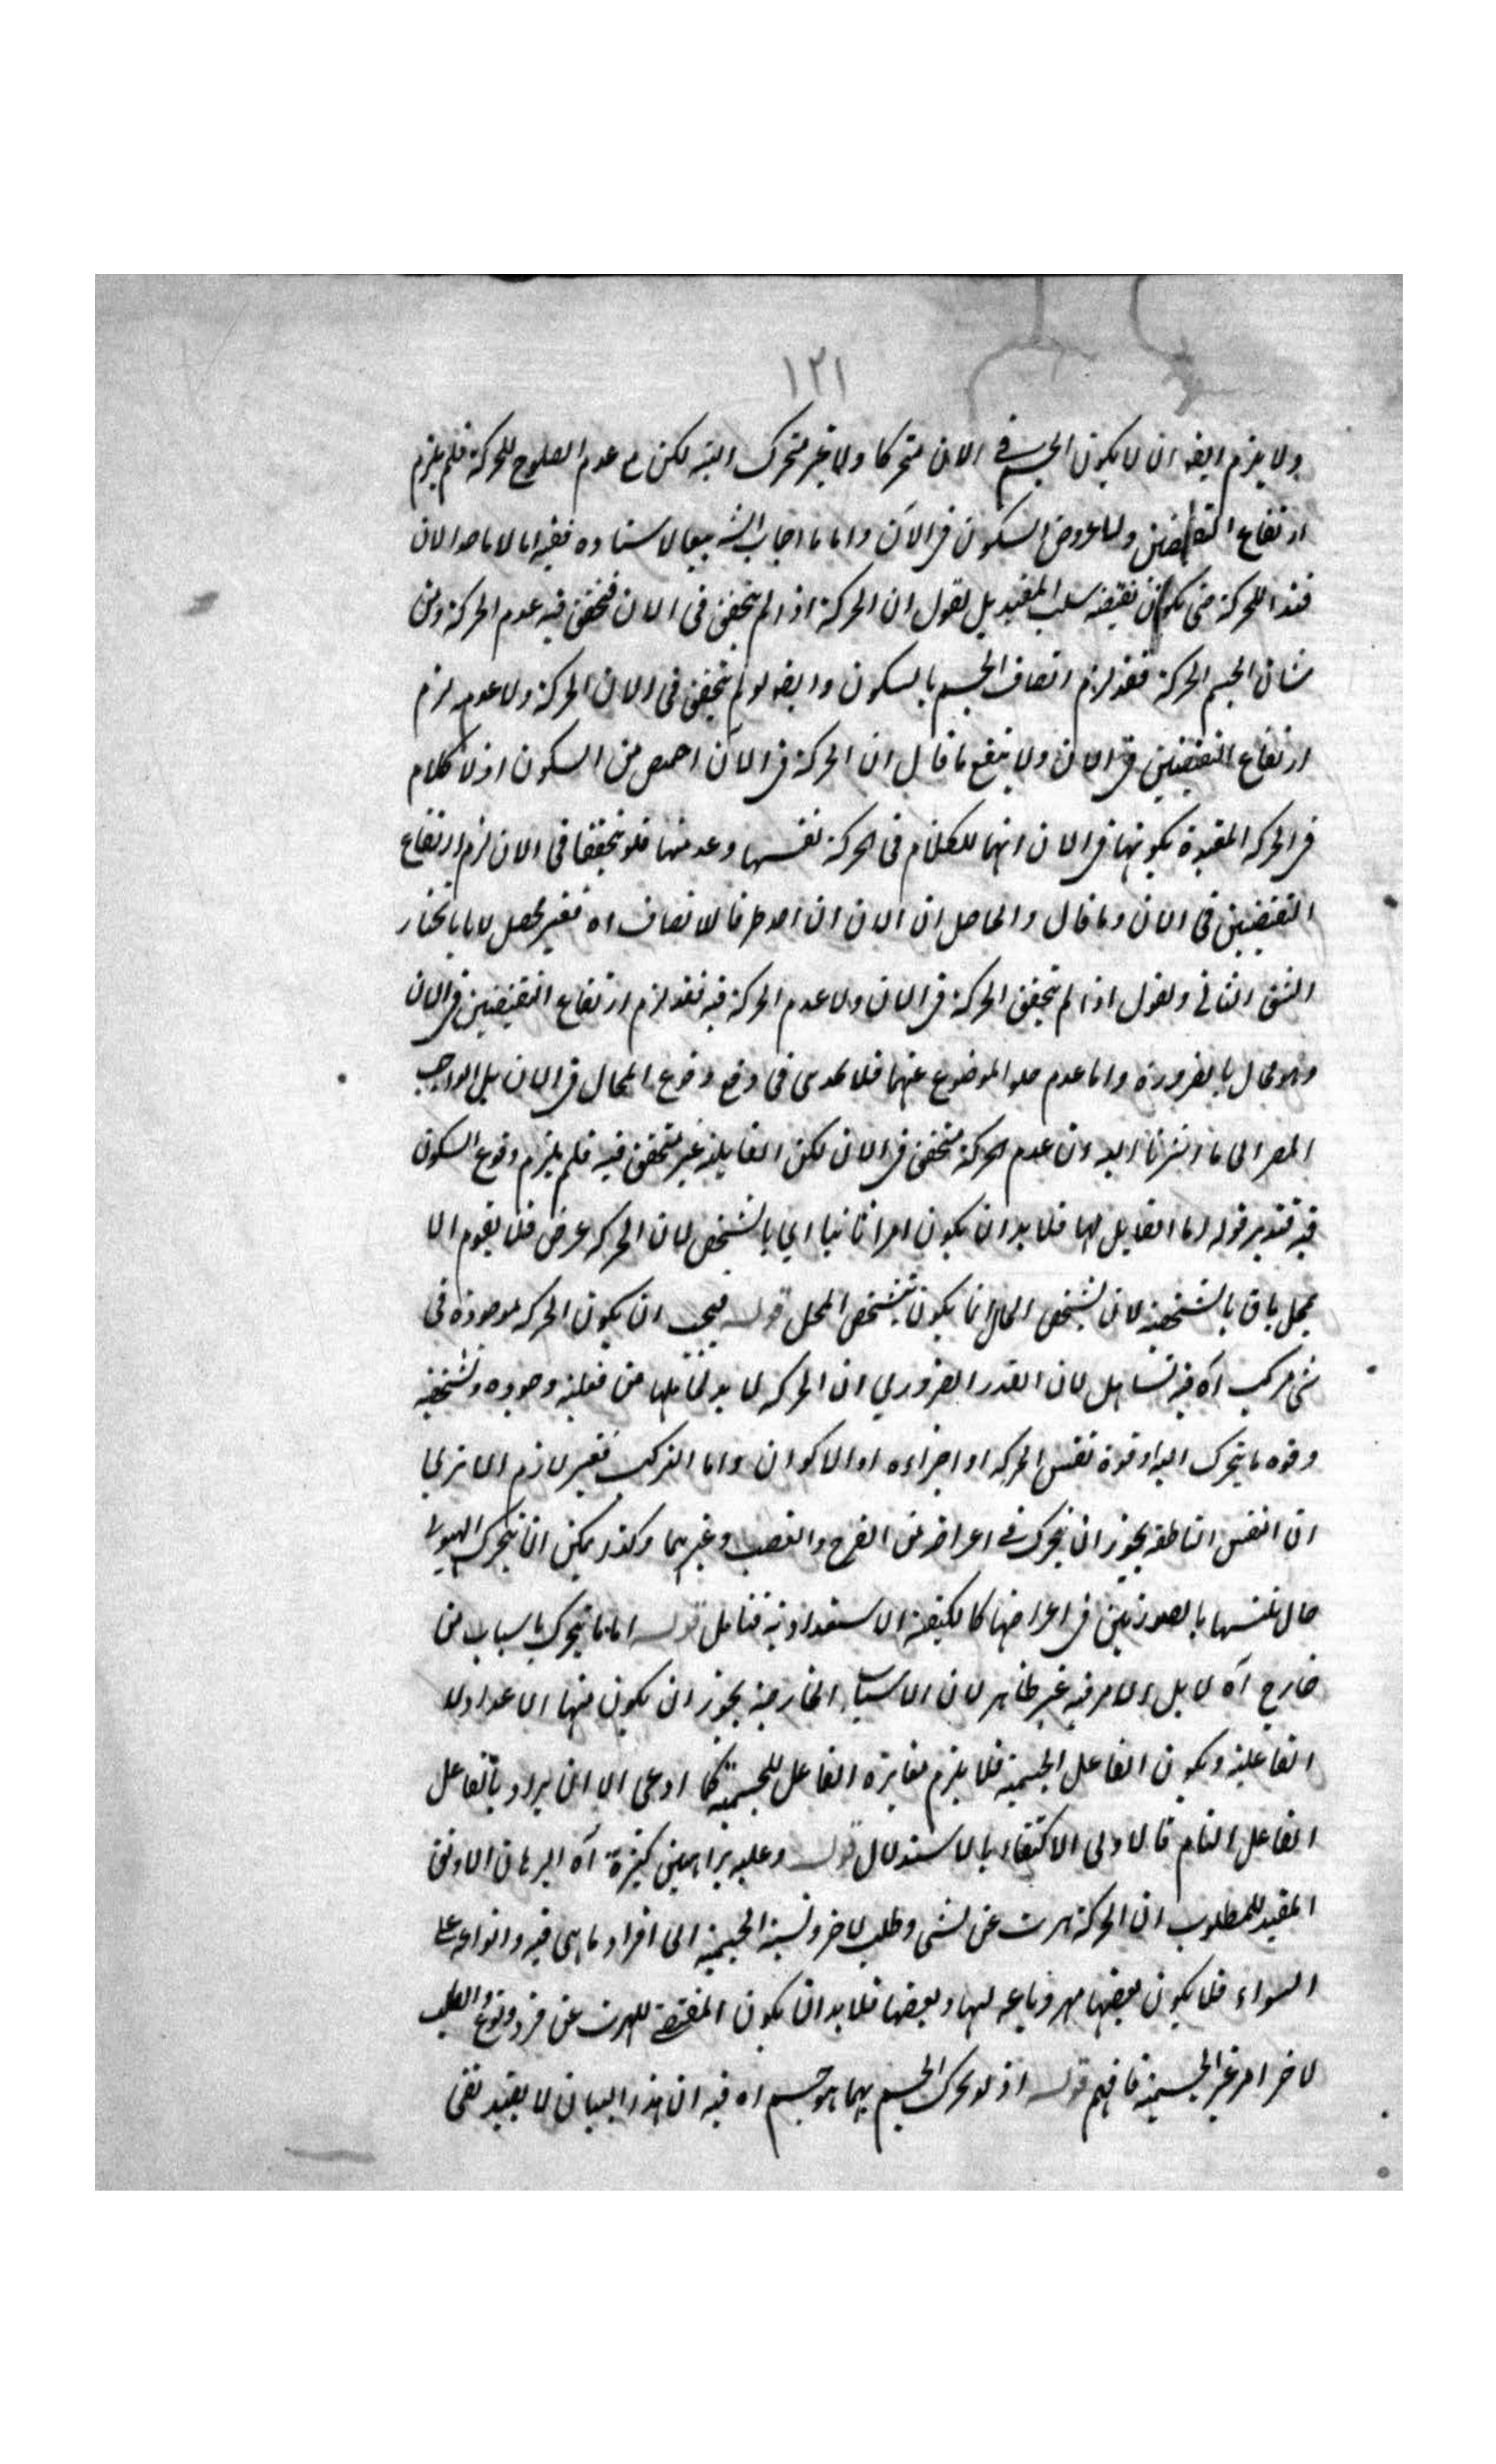 ١٢١
ولا يلزم ايضه ان لا يكون الجسم في الان متحركا ولا غير متحرك البتة لكن مع عدم الصلوح للحركة فلم يلزم
ارتفاع النقيضين ولا عروض السكون فى الآن واما ما اجاب الشه تبعا لاستاده ففيه اما لا ما هو الان
قيد اللحركة حتى يكون نقيضه سلب المقيد بل نقول ان الحركة اذا لم يتحقق فى الان فتحقق فيه عدم الحركة ومن
شان الجسم الحركة فقد لزم اتصاف الجسم بالسكون وايضه لو لم يتحقق فى الان الحركة ولا عدمه لزم
ارتفاع النقيضين فى الان ولا ينفع ما قال ان الحركة فى الآن اخص من السكون اذ لا كلام
فى الحركه المقيدة بكونها فى الان انما الكلام فى الحركة نفسها وعدمها فلو تحققا فى الان لزم ارتفاع
النقيضين فى الان وما قال والحاصل ان الان ان اخذ ظرفا للاتصاف اه فغير محصل لانا نختار
الشق الثانى ونقول اذا لم يتحقق الحركة فى الان ولا عدم الحركة فيه فقد لزم ارتفاع النقيضين فى الان
وهو محال بالضرورة واما عدم خلو الموضوع عنهما فلا يجدى فى دفع وقوع المحال فى الان بل الواجب
المصر الى ما اشرنا اليه وان عدم الحركة متحقق فى الان لكن القابلية غير متحقق فيه فلم يلزم وقوع السكون
فيه فتدبر قوله اما القابل لها فلا بد ان يكون امرا ثابتا اي بالشخص لان الحركه عرض فلا يقوم الا
بمحل باق بالشخصية لان تشخص الحال انما يكون بتشخص المحل قوله فيجب ان يكون الحركه موجودة فى
شى مركب آه فيه تساهل لان القدر الضروري ان الحركه لا بد لقابلها من فعلية وجوده وتشخصه
وقوه ما يتحرك اليه او قوة نفس الحركه او اجزاءه او الاكوان واما التركيب فغير لازم الا ترى
ان النفس الناطقه يجوز ان يتحرك في اعراضه من الفرح والغضب وغيرهما وكذا يمكن ان يتحرك الهيولى
حال تلبسها بالصورتين فى اعراضها كالكيفية الاستعدادية فتامل قوله اما ما يتحرك باسباب من
خارج آه لا بل الامر فيه غير ظاهر لان الاسباب الخارجية يجوز ان يكون منها الاعداد لا
الفاعلية ويكون الفاعل الجسمية فلا يلزم مغايرة الفاعل للجسمية كما ادعى الا ان يراد بالفاعل
الفاعل التام فالاولى الاكتفاء بالاستدلال قوله وعليه براهين كثيرة آه البرهان الاوثق
المفيد للمطلوب ان الحركة هرب عن شى وطلب لاخر ونسبة الجسمية الى افراد ما هى فيه وانواعه على
السواء فلا يكون بعضها مهروبا عنه لها وبعضها فلا بد ان يكون المقتضى للهرب عن فرد ونوع والطلب
لاخر امر غير الجسمية فافهم قوله اذ لو تحرك الجسم بما هو جسم اه فيه ان هذا البيان لا يفيد نفى